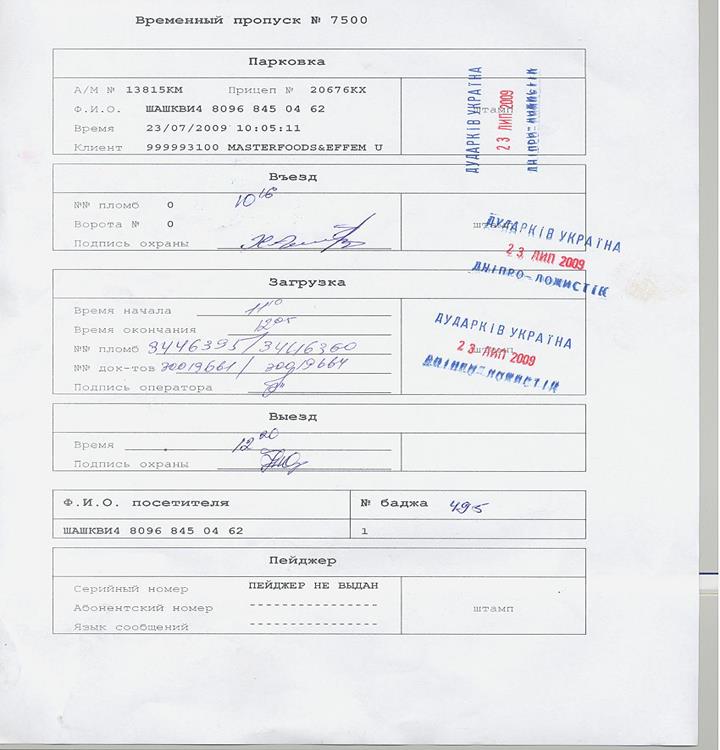 Временный пропуск № 7500
Парковка
А/М № 13815КМ Прицеп № 20676КХ
Ф.И.О. ШАШКВИ4 8096 845 04 62
Время 23/07/2009 10:05:11
Клиент 999993100 MASTERFOODS&EFFEM U
штамп
ДУДАРКІВ УКРАЇНА
23 ЛИП 2009
ДНІПРО-ЛОЖИСТІК
Въезд
№№ пломб 0 10 16
Ворота № 0
Подпись охраны
ДУДАРКІВ УКРАЇНА
23 ЛИП 2009
ДНІПРО-ЛОЖИСТІК
Загрузка
Время начала 11 10
Время окончания 12 05
№№ пломб 3446395/3446360
№№ док-тов 30019661 / 30019664
Подпись оператора
ДУДАРКІВ УКРАЇНА
штамп
23 ЛИП 2009
ДНІПРО-ЛОЖИСТІК
Выезд
Время 12 20
Подпись охраны
Ф.И.О. посетителя № баджа 495
ШАШКВИ4 8096 845 04 62 1
Пейджер
Серийный номер ПЕЙДЖЕР НЕ ВЫДАН
Абонентский номер ---------------
Язык сообщений ---------------
штамп